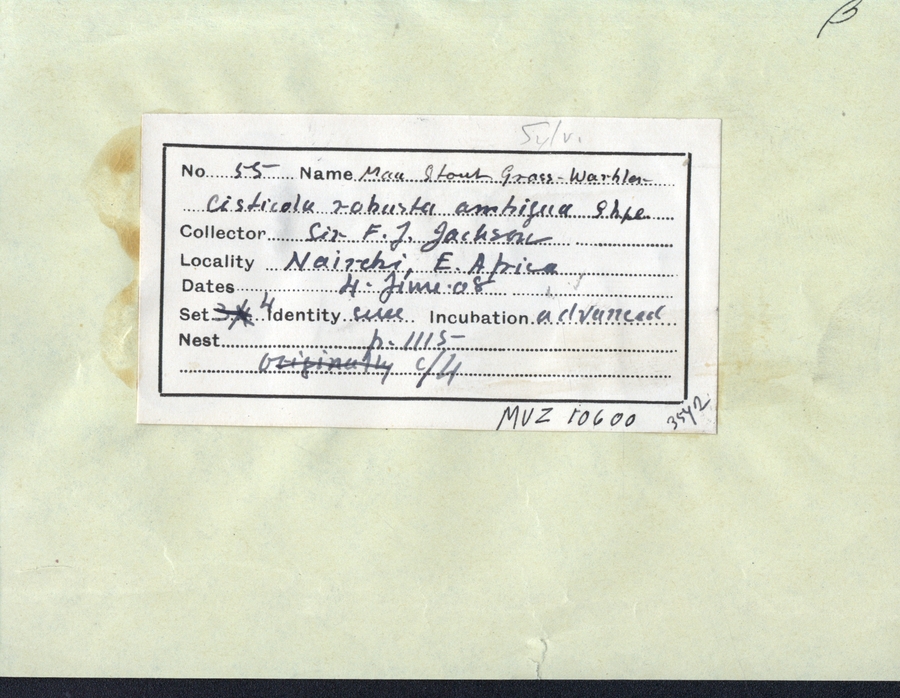 β
Sylv.
No. 55 Name Mau Stout Grass-Warbler
Cisticola robusta ambigua Shpe.
Collector Sir F. J. Jackson
Locality Nairobi, E. Africa
Dates 4. June. 08
Set 4 Identity sure Incubation advanced
Nest p. 1115
Originally c/4
MVZ 10600
3542